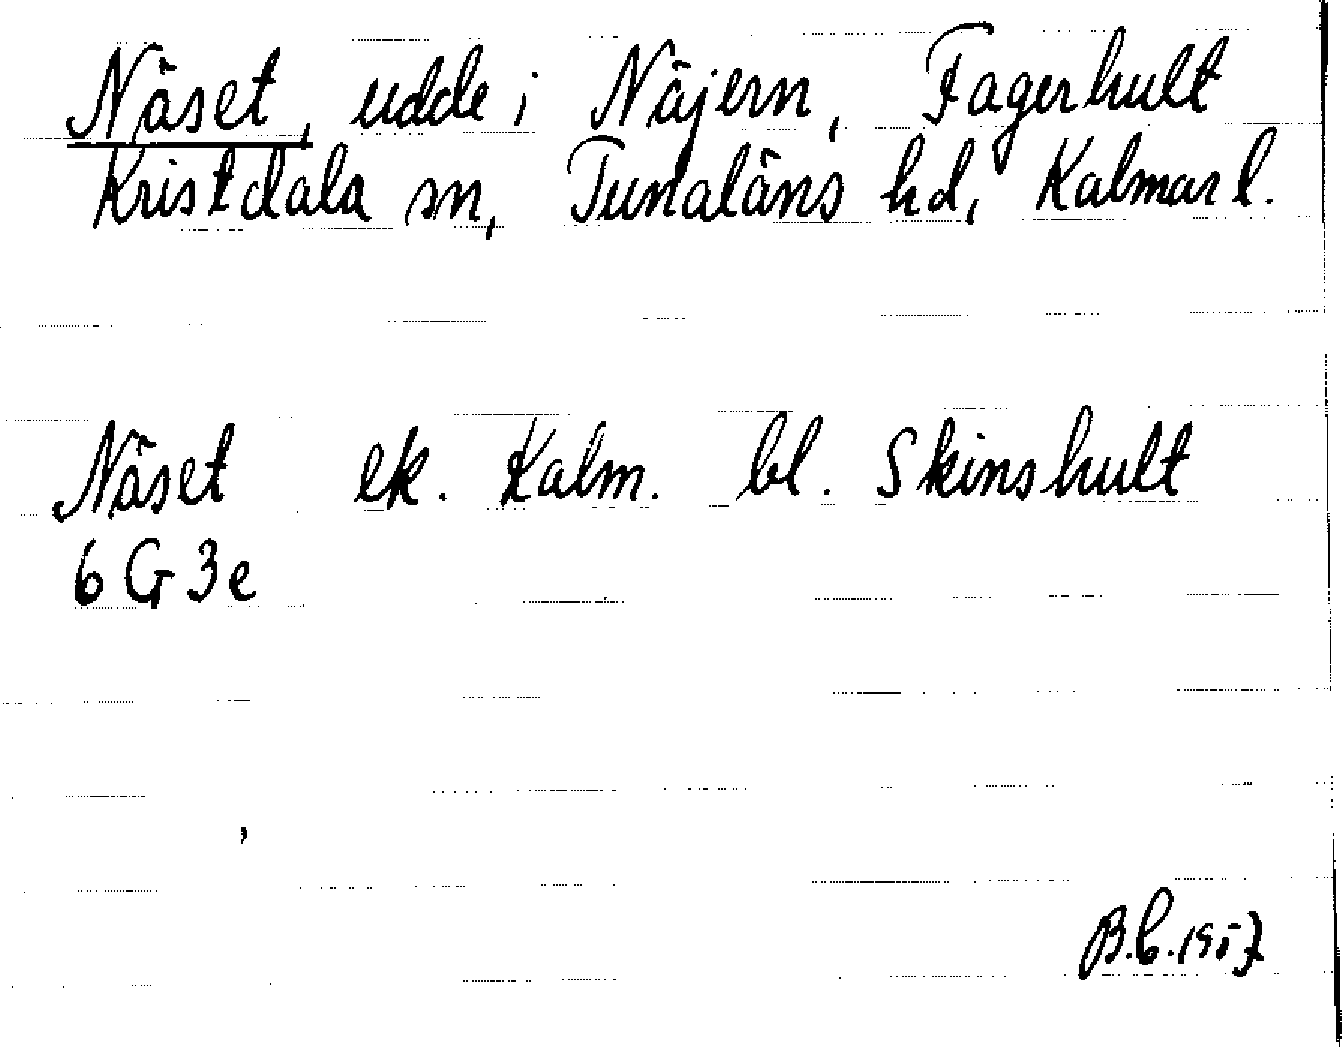 Näset, udde i Näjern, Fagerhult
Kristdala sn, Tunaläns hd, Kalmar l.
Näset ek. Kalm. bl. Skinshult
6 G 3e
B.C. 1957